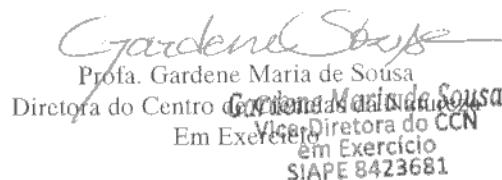 Gardene Sousa
Profa. Gardene Maria de Sousa
Diretora do Centro de Ciências da Natureza
Em Exercício
Gardene Maria de Sousa
Vice-Diretora do CCN
em Exercício
SIAPE 8423681